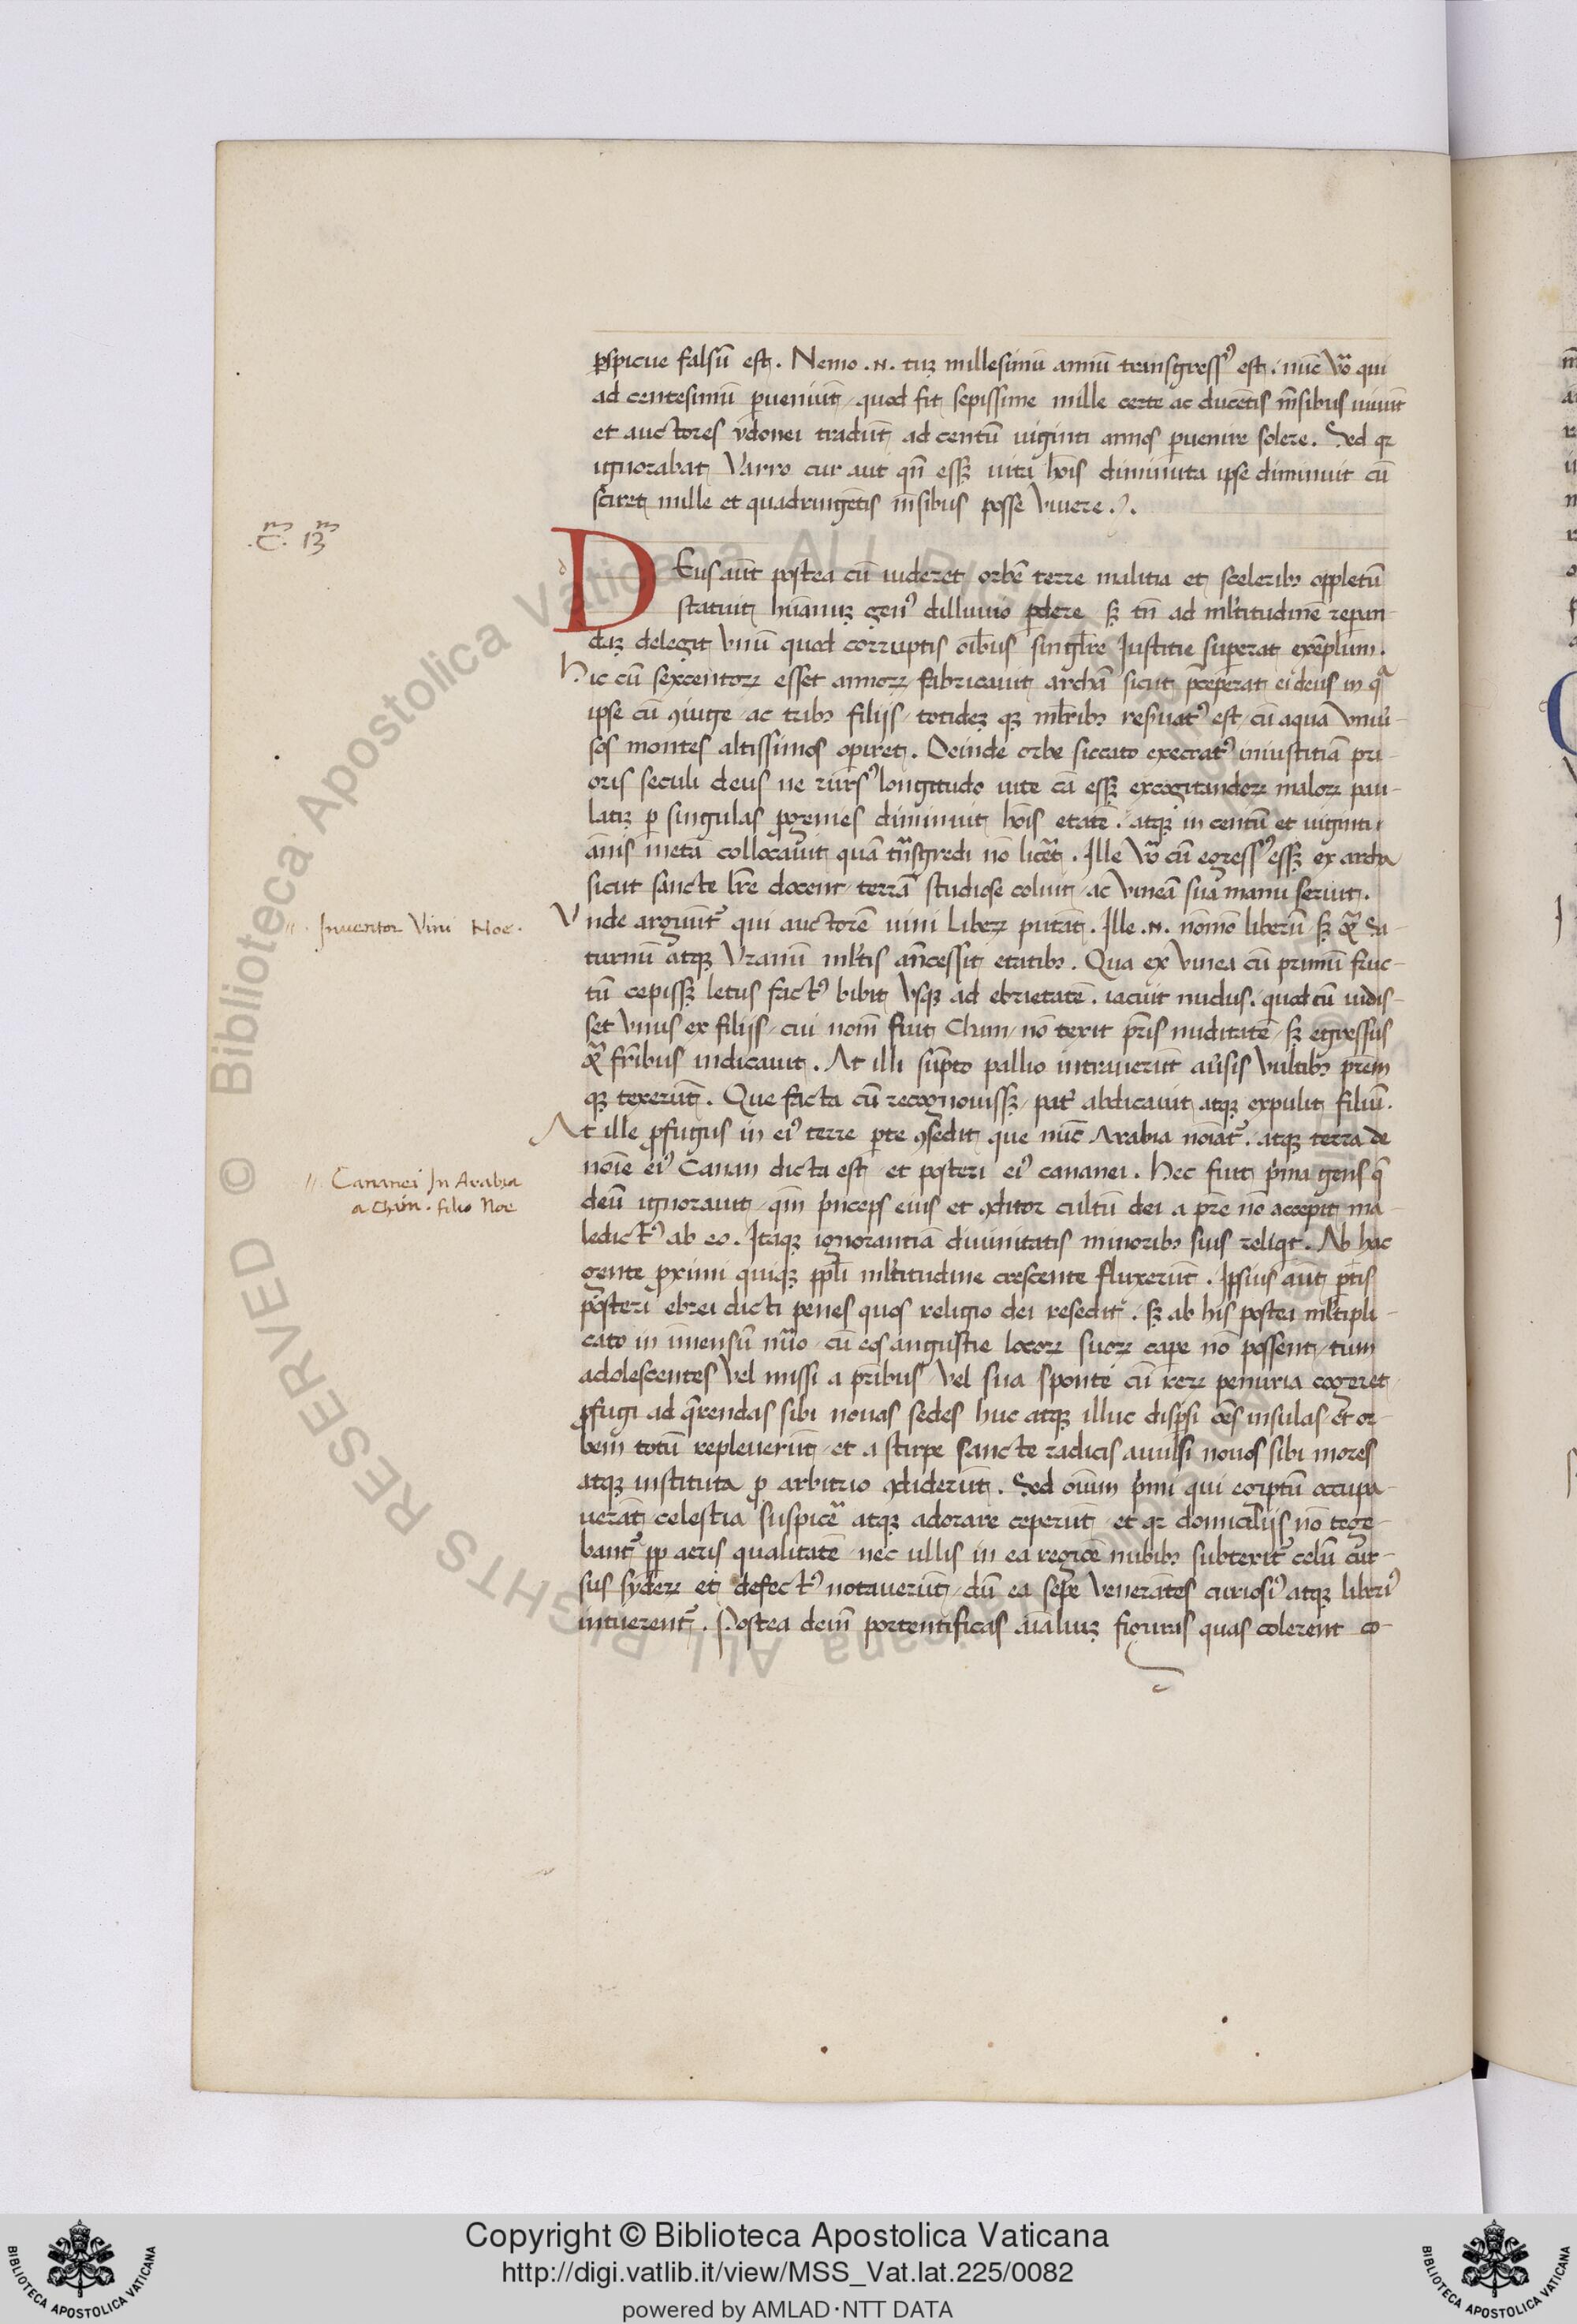 ꝑspicue falsū est. Nemo .n. tuꝫ millesimū annū transgressꝰ est. nūc ṽo qui
ad centesimū ꝑueniūt quod fit sepissime mille certe ac ducētis mēsibus uiuūt
et auctores ydonei tradūt ad centū uiginti annos ꝑuenire solere. Sed qꝛ
ignorabat Varro cur aut qñ essꝫ uita hōis diminuta ipse diminuit cū
sciret mille et quadringētis mēsibus posse viuere.
.C. 13m
DEus aūt postea cū uideret orbē terre malitia et sceleribꝫ oppletū
statuit hūanuꝫ genꝰ dilluuio ꝑdere sꝫ tñ ad ml̃titudinē repan-
daꝫ delegit vnū quod corruptis oībus singl̃re Justitie superat exēplum.
Hic cū sexcentoꝝ esset annoꝝ fabricauit archā sicut p̄ceperat ei deus in qͣ
ipse cū ꝯiuge ac tribꝫ filijs totideꝫ qꝫ ml̃ribꝫ res̃uatꝰ est cū aqua vniũ-
sos montes altissimos oꝑiret. Deinde orbe siccato execratꝰ iniustitiā pri-
oris seculi deus ne rursꝰ longitudo uite cā essꝫ excogitandoꝝ maloꝝ pau-
latiꝫ ꝑ singulas ꝓgenies diminuit hōis etatē. atqꝫ in centū et uiginti
ānis metā collocauit quā trāsgredi nō licēt. Ille ṽo cū egressꝰ essꝫ ex archa
sicut sancte lr̃e docent terrā studiose coluit ac vineā sua manu seriut.
.. Inuentor Vini Noe.
Vnde arguūtᷣ qui auctorē uini Libeꝝ putāt. Ille .n. nōmō liberū sꝫ qͣꝫ Sa-
turnū atqꝫ Vranū ml̃tis āncessit etatibꝫ. Qua ex vinea cū primū fruc-
tū cepissꝫ letus factꝰ bibit vsqꝫ ad ebrietatē. iacuit nudus. quod cū uidis-
set vnus ex filijs cui nom̄ fuit Cham nō texit pr̃is nuditatē sꝫ egressus
fr̃ibus indicauit. At illi sūpto pallio intrauerūt aũsis vultibꝫ prēm
qꝫ texerūt. Que facta cū recognouissꝫ pat̃ abdicauit atqꝫ expulit filiū.
At ille ꝓfugus in eiꝰ terre ꝑte ꝯsedit que nūc Arabia noīatᷣ. atqꝫ terra de
.. Cananei In Arabia
a Cham. filio Noe
noīe eiꝰ Canan dicta est et posteri eiꝰ cananei. Hec fuit p̃ma gens q̄
deū ignorauit qm̄ p̃nceps eius et ꝯditor cultū dei a pr̃e nō accepit ma-
ledictꝰ ab eo. Itaqꝫ ignorantiā diuinitatis minoribꝫ suis reliqt. Ab hac
gente ꝓximi quiqꝫ pp̃li ml̃titudine crescente fluxerūt. Ipsius aūt pr̃is
posteri ebrei dicti penes quos religio dei resedit. sꝫ ab his postea ml̃tipli-
cato in imensū nũo cū eos angustie locoꝝ suoꝝ caꝑe nō possent tum
adolescentes vel missi a pr̃ibus vel sua sponte cū reꝝ penuria cogeret
ꝓfugi ad q̄rendas sibi nouas sedes huc atqꝫ illuc disꝑsi oēs insulas et or-
bem totū repleuerūt et a stirpe sancte radicis auulsi nouos sibi mores
atqꝫ instituta ꝓ arbitrio ꝯdiderūt. Sed oīum p̃mi qui egiptū occupa-
uerāt celestia suspicē atqꝫ adorare ceperūt et qꝛ domicilijs nō tege-
bantᷣ ꝓp aeris qualitatē nec ullis in ea regiōe nubibꝫ subtexitᷣ celū cur-
sus syderꝝ et defectꝰ notauerūt dū ea sepe venerātes curiosiꝰ atqꝫ liberiꝰ
intuerentᷣ. Postea dein̄ portentificas aīaliuꝫ figuras quas colerent co-
Copyright © Biblioteca Apostolica Vaticana
http://digi.vatlib.it/view/MSS_Vat.lat.225/0082
powered by AMLAD·NTT DATA
BIBLIOTECA APOSTOLICA VATICANA
BIBLIOTECA APOSTOLICA VATICANA
© Biblioteca Apostolica Vaticana ALL RIGHTS RESERVED